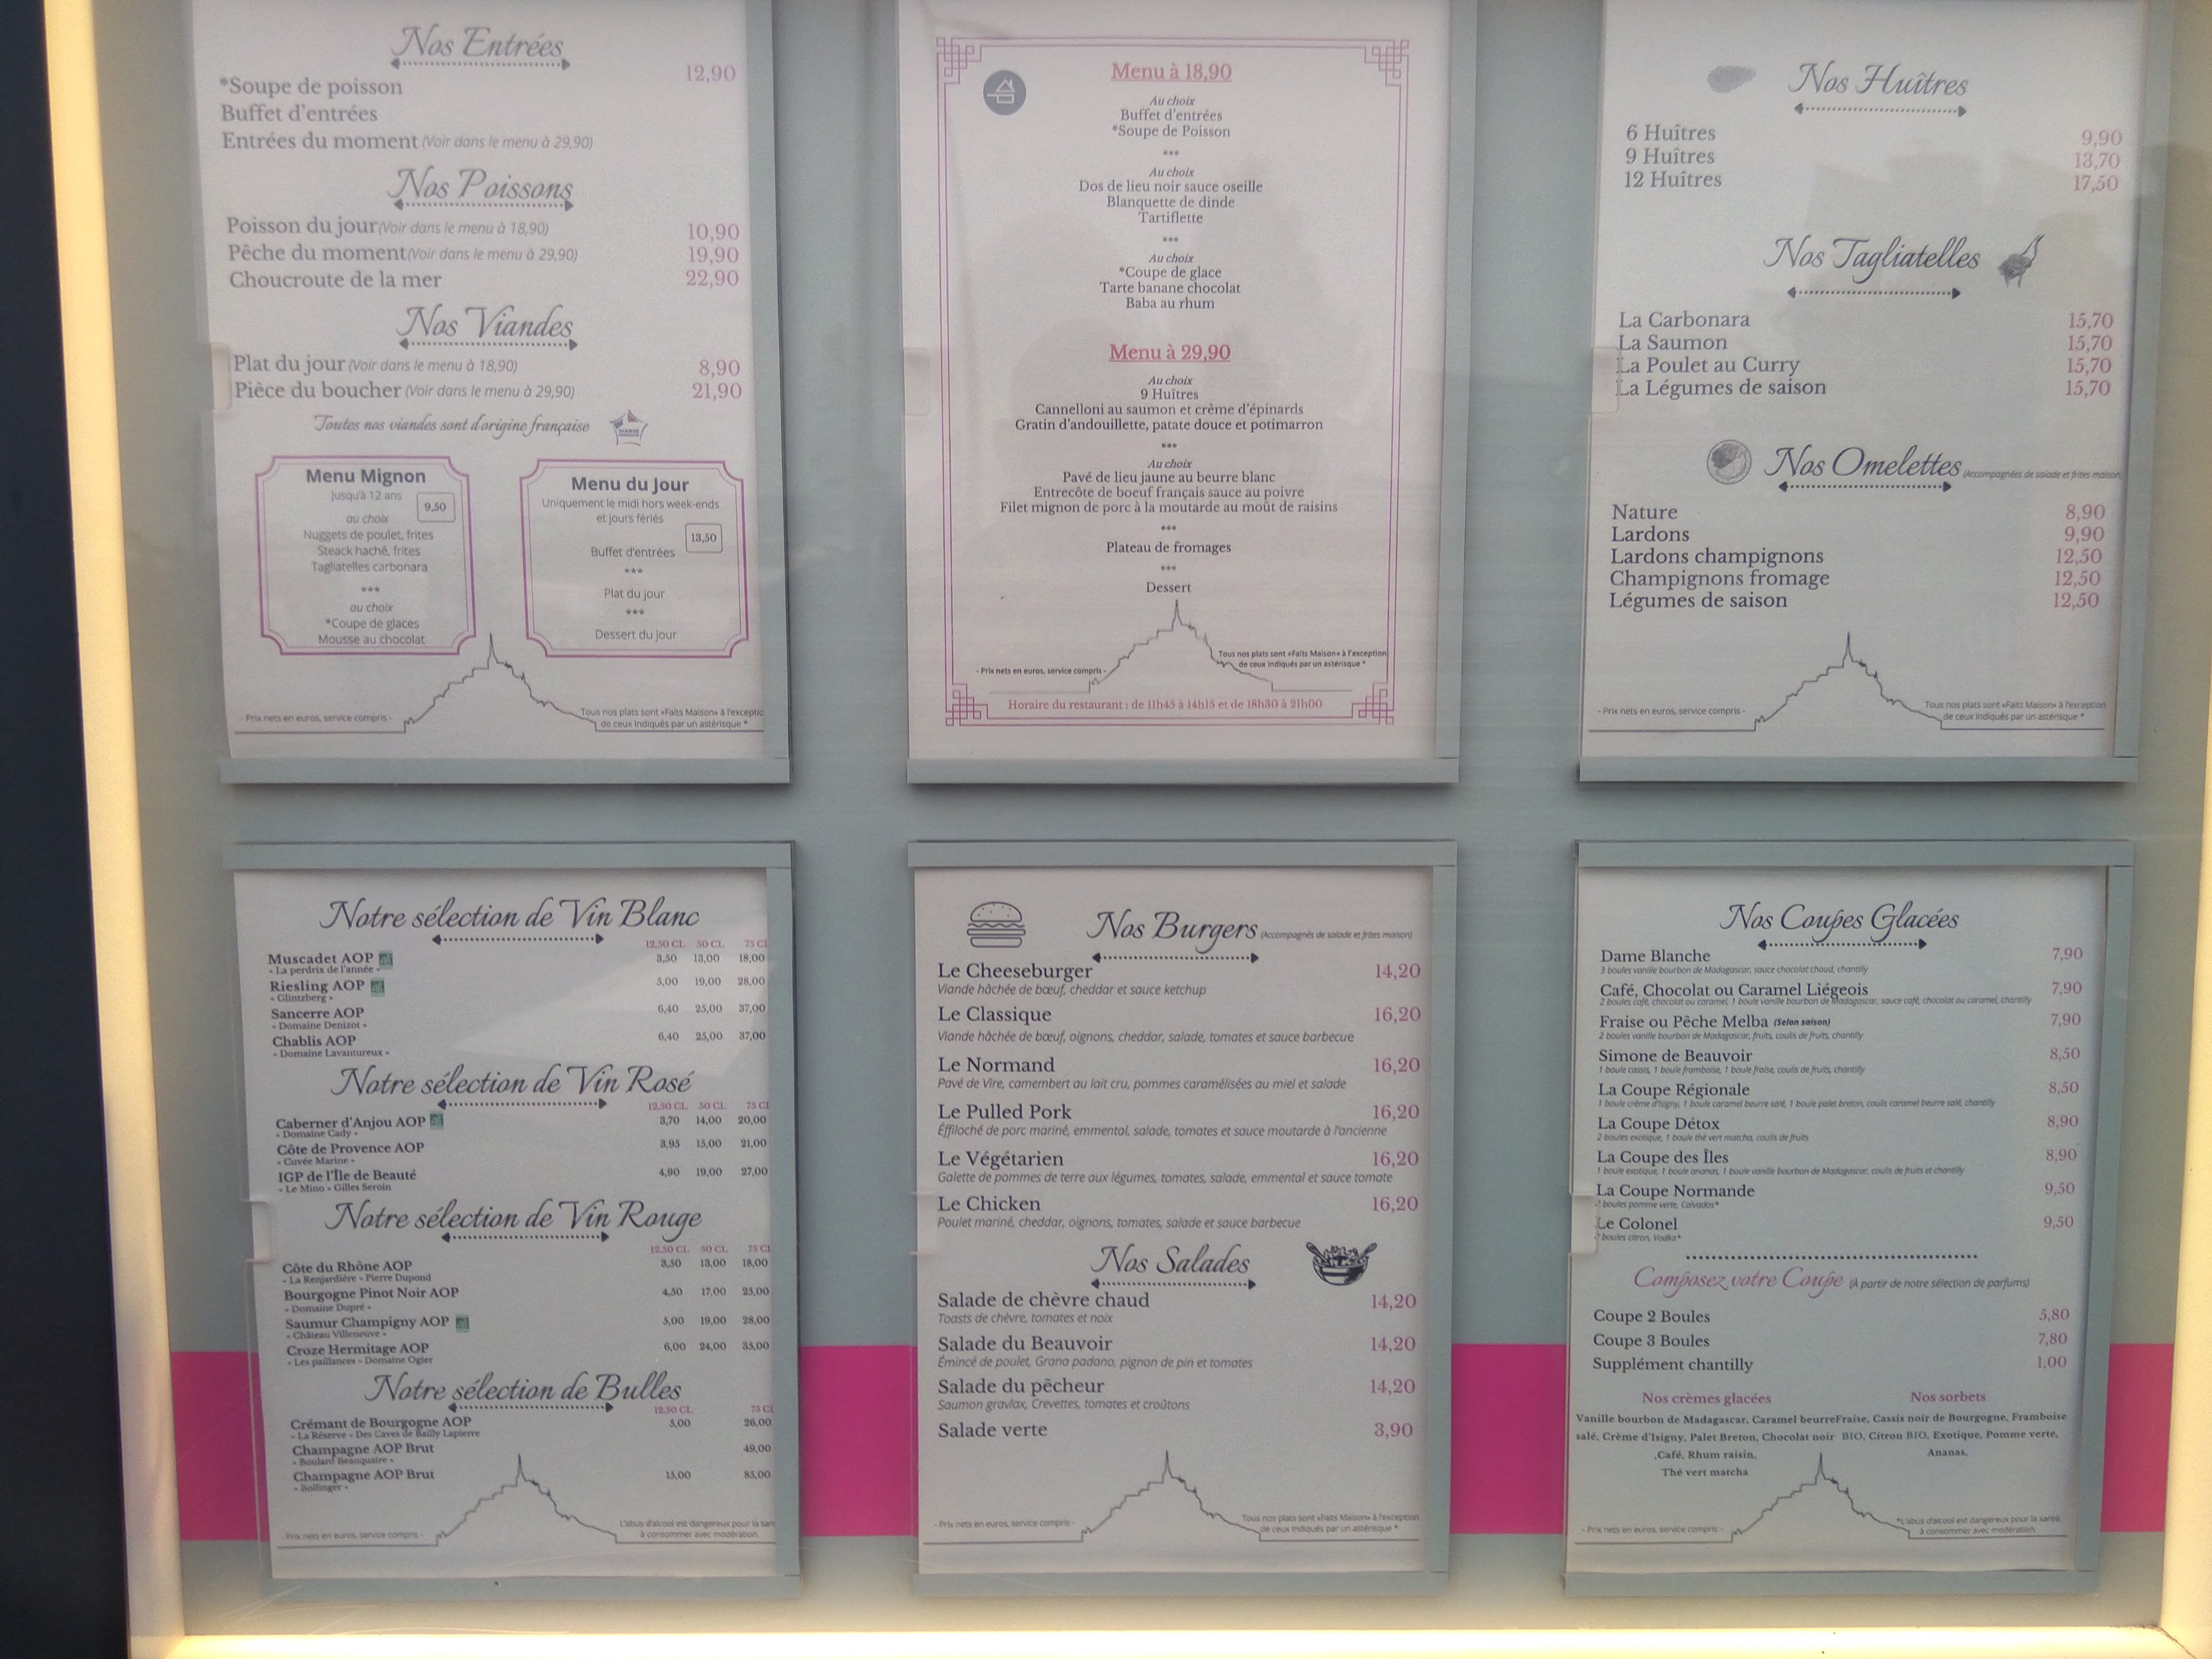 Nos Entrées
*Soupe de poisson 12,90
Buffet d'entrées
Entrées du moment (Voir dans le menu à 29,90)
Nos Poissons
Poisson du jour (Voir dans le menu à 18,90) 10,90
Pêche du moment (Voir dans le menu à 29,90) 19,90
Choucroute de la mer 22,90
Nos Viandes
Plat du jour (Voir dans le menu à 18,90) 8,90
Pièce du boucher (Voir dans le menu à 29,90) 21,90
Toutes nos viandes sont d'origine française
Menu Mignon
Jusqu'à 12 ans
9,50
au choix
Nuggets de poulet, frites
Steack haché, frites
Tagliatelles carbonara
***
au choix
*Coupe de glaces
Mousse au chocolat
Menu du Jour
Uniquement le midi hors week-ends
et jours fériés
13,50
Buffet d'entrées
***
Plat du jour
***
Dessert du jour
- Prix nets en euros, service compris -
Tous nos plats sont «Faits Maison» à l'exceptio
de ceux Indiqués par un astérisque *
Menu à 18,90
Au choix
Buffet d'entrées
*Soupe de Poisson
***
Au choix
Dos de lieu noir sauce oseille
Blanquette de dinde
Tartiflette
***
Au choix
*Coupe de glace
Tarte banane chocolat
Baba au rhum
Menu à 29,90
Au choix
9 Huîtres
Cannelloni au saumon et crème d'épinards
Gratin d'andouillette, patate douce et potimarron
***
Au choix
Pavé de lieu jaune au beurre blanc
Entrecôte de boeuf français sauce au poivre
Filet mignon de porc à la moutarde au moût de raisins
***
Plateau de fromages
***
Dessert
- Prix nets en euros, service compris -
Tous nos plats sont «Faits Maison» à l'exception
de ceux Indiqués par un astérisque *
Horaire du restaurant : de 11h45 à 14h15 et de 18h30 à 21h00
Nos Huîtres
6 Huîtres 9,90
9 Huîtres 13,70
12 Huîtres 17,50
Nos Tagliatelles
La Carbonara 15,70
La Saumon 15,70
La Poulet au Curry 15,70
La Légumes de saison 15,70
Nos Omelettes (Accompagnées de salade et frites maison)
Nature 8,90
Lardons 9,90
Lardons champignons 12,50
Champignons fromage 12,50
Légumes de saison 12,50
- Prix nets en euros, service compris -
Tous nos plats sont «Faits Maison» à l'exception
de ceux Indiqués par un astérisque *
Notre sélection de Vin Blanc
12,50 CL 50 CL 75 CL
Muscadet AOP 3,50 13,00 18,00
- La perdrix de l'année -
Riesling AOP 5,00 19,00 28,00
- Glintzberg -
Sancerre AOP 6,40 25,00 37,00
- Domaine Denizot -
Chablis AOP 6,40 25,00 37,00
- Domaine Lavantureux -
Notre sélection de Vin Rosé
12,50 CL 50 CL 75 CL
Caberner d'Anjou AOP 3,70 14,00 20,00
- Domaine Cady -
Côte de Provence AOP 3,95 15,00 21,00
- Cuvée Marine -
IGP de l'Île de Beauté 4,90 19,00 27,00
- Le Mino - Gilles Seroin
Notre sélection de Vin Rouge
12,50 CL 50 CL 75 CL
Côte du Rhône AOP 3,50 13,00 18,00
- La Renjardière - Pierre Dupond
Bourgogne Pinot Noir AOP 4,50 17,00 25,00
- Domaine Dupré -
Saumur Champigny AOP 5,00 19,00 28,00
- Château Villeneuve -
Croze Hermitage AOP 6,00 24,00 35,00
- Les paillances - Domaine Ogier
Notre sélection de Bulles
12,50 CL 75 CL
Crémant de Bourgogne AOP 5,00 26,00
- La Réserve - Des Caves de Bailly Lapierre
Champagne AOP Brut 49,00
- Boulard Beauquaire -
Champagne AOP Brut 15,00 85,00
- Bollinger -
- Prix nets en euros, service compris -
L'abus d'alcool est dangereux pour la san
à consommer avec modération.
Nos Burgers (Accompagnés de salade et frites maison)
Le Cheeseburger 14,20
Viande hâchée de bœuf, cheddar et sauce ketchup
Le Classique 16,20
Viande hâchée de bœuf, oignons, cheddar, salade, tomates et sauce barbecue
Le Normand 16,20
Pavé de Vire, camembert au lait cru, pommes caramélisées au miel et salade
Le Pulled Pork 16,20
Éffiloché de porc mariné, emmental, salade, tomates et sauce moutarde à l'ancienne
Le Végétarien 16,20
Galette de pommes de terre aux légumes, tomates, salade, emmental et sauce tomate
Le Chicken 16,20
Poulet mariné, cheddar, oignons, tomates, salade et sauce barbecue
Nos Salades
Salade de chèvre chaud 14,20
Toasts de chèvre, tomates et noix
Salade du Beauvoir 14,20
Émincé de poulet, Grana padano, pignon de pin et tomates
Salade du pêcheur 14,20
Saumon gravlax, Crevettes, tomates et croûtons
Salade verte 3,90
- Prix nets en euros, service compris -
Tous nos plats sont «Faits Maison» à l'exception
de ceux Indiqués par un astérisque *
Nos Coupes Glacées
Dame Blanche 7,90
3 boules vanille bourbon de Madagascar, sauce chocolat chaud, chantilly
Café, Chocolat ou Caramel Liégeois 7,90
2 boules café, chocolat ou caramel, 1 boule vanille bourbon de Madagascar, sauce café, chocolat ou caramel, chantilly
Fraise ou Pêche Melba (Selon saison) 7,90
2 boules vanille bourbon de Madagascar, fruits, coulis de fruits, chantilly
Simone de Beauvoir 8,50
1 boule cassis, 1 boule framboise, 1 boule fraise, coulis de fruits, chantilly
La Coupe Régionale 8,50
1 boule crème d'Isigny, 1 boule caramel beurre salé, 1 boule palet breton, coulis caramel beurre salé, chantilly
La Coupe Détox 8,90
2 boules exotique, 1 boule thé vert matcha, coulis de fruits
La Coupe des Îles 8,90
1 boule exotique, 1 boule ananas, 1 boule vanille bourbon de Madagascar, coulis de fruits et chantilly
La Coupe Normande 9,50
boules pomme verte, Calvados*
Le Colonel 9,50
boules citron, Vodka*
Composez votre Coupe (À partir de notre sélection de parfums)
Coupe 2 Boules 5,80
Coupe 3 Boules 7,80
Supplément chantilly 1,00
Nos crèmes glacées
Vanille bourbon de Madagascar, Caramel beurre
salé, Crème d'Isigny, Palet Breton, Chocolat noir
,Café, Rhum raisin,
Thé vert matcha
Nos sorbets
Fraise, Cassis noir de Bourgogne, Framboise
BIO, Citron BIO, Exotique, Pomme verte,
Ananas,
- Prix nets en euros, service compris -
*L'abus d'alcool est dangereux pour la santé,
à consommer avec modération.